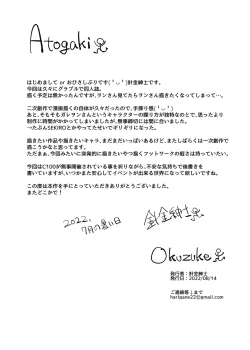 Atogaki
はじめまして or おひさしぶりです(╹◡╹)針金紳士です。
今回は久々にグラブルで同人誌。
描く予定は無かったんですが、サンさん見てたらサンさん描きたくなってしまって…。
二次創作で漫画描くの自体が久々だったので、手探り感(╹◡╹)
あと、そもそもガレヲンさんというキャラクターの喋り方が独特なので、思ったより
制作に時間がかかってしまいましたが、無事締切には間に合いました。
→たぶんSEKIROとかやってたせいでギリギリになった。
描きたい作品や描きたいキャラ、まだまだいっぱいあるけど、またしばらくは一次創作で
描こうかなと思ってます。
ただまぁ、今回みたいに突発的に描きたいやつ描くフットワークの軽さは持っていたい。
今回はC100が無事開催されている事を祈りながら、不安な気持ちで後書きを
書いていますが、いつかまた安心してイベントが出来る世界になって欲しいですね。
この度は本作を手にとっていただきありがとうございました。
またどこかで!
2022.
7月の暑い日
針金紳士
Okuzuke
発行者:針金紳士
発行日:2022/08/14
ご連絡等↓まで
harigane22@gmail.com